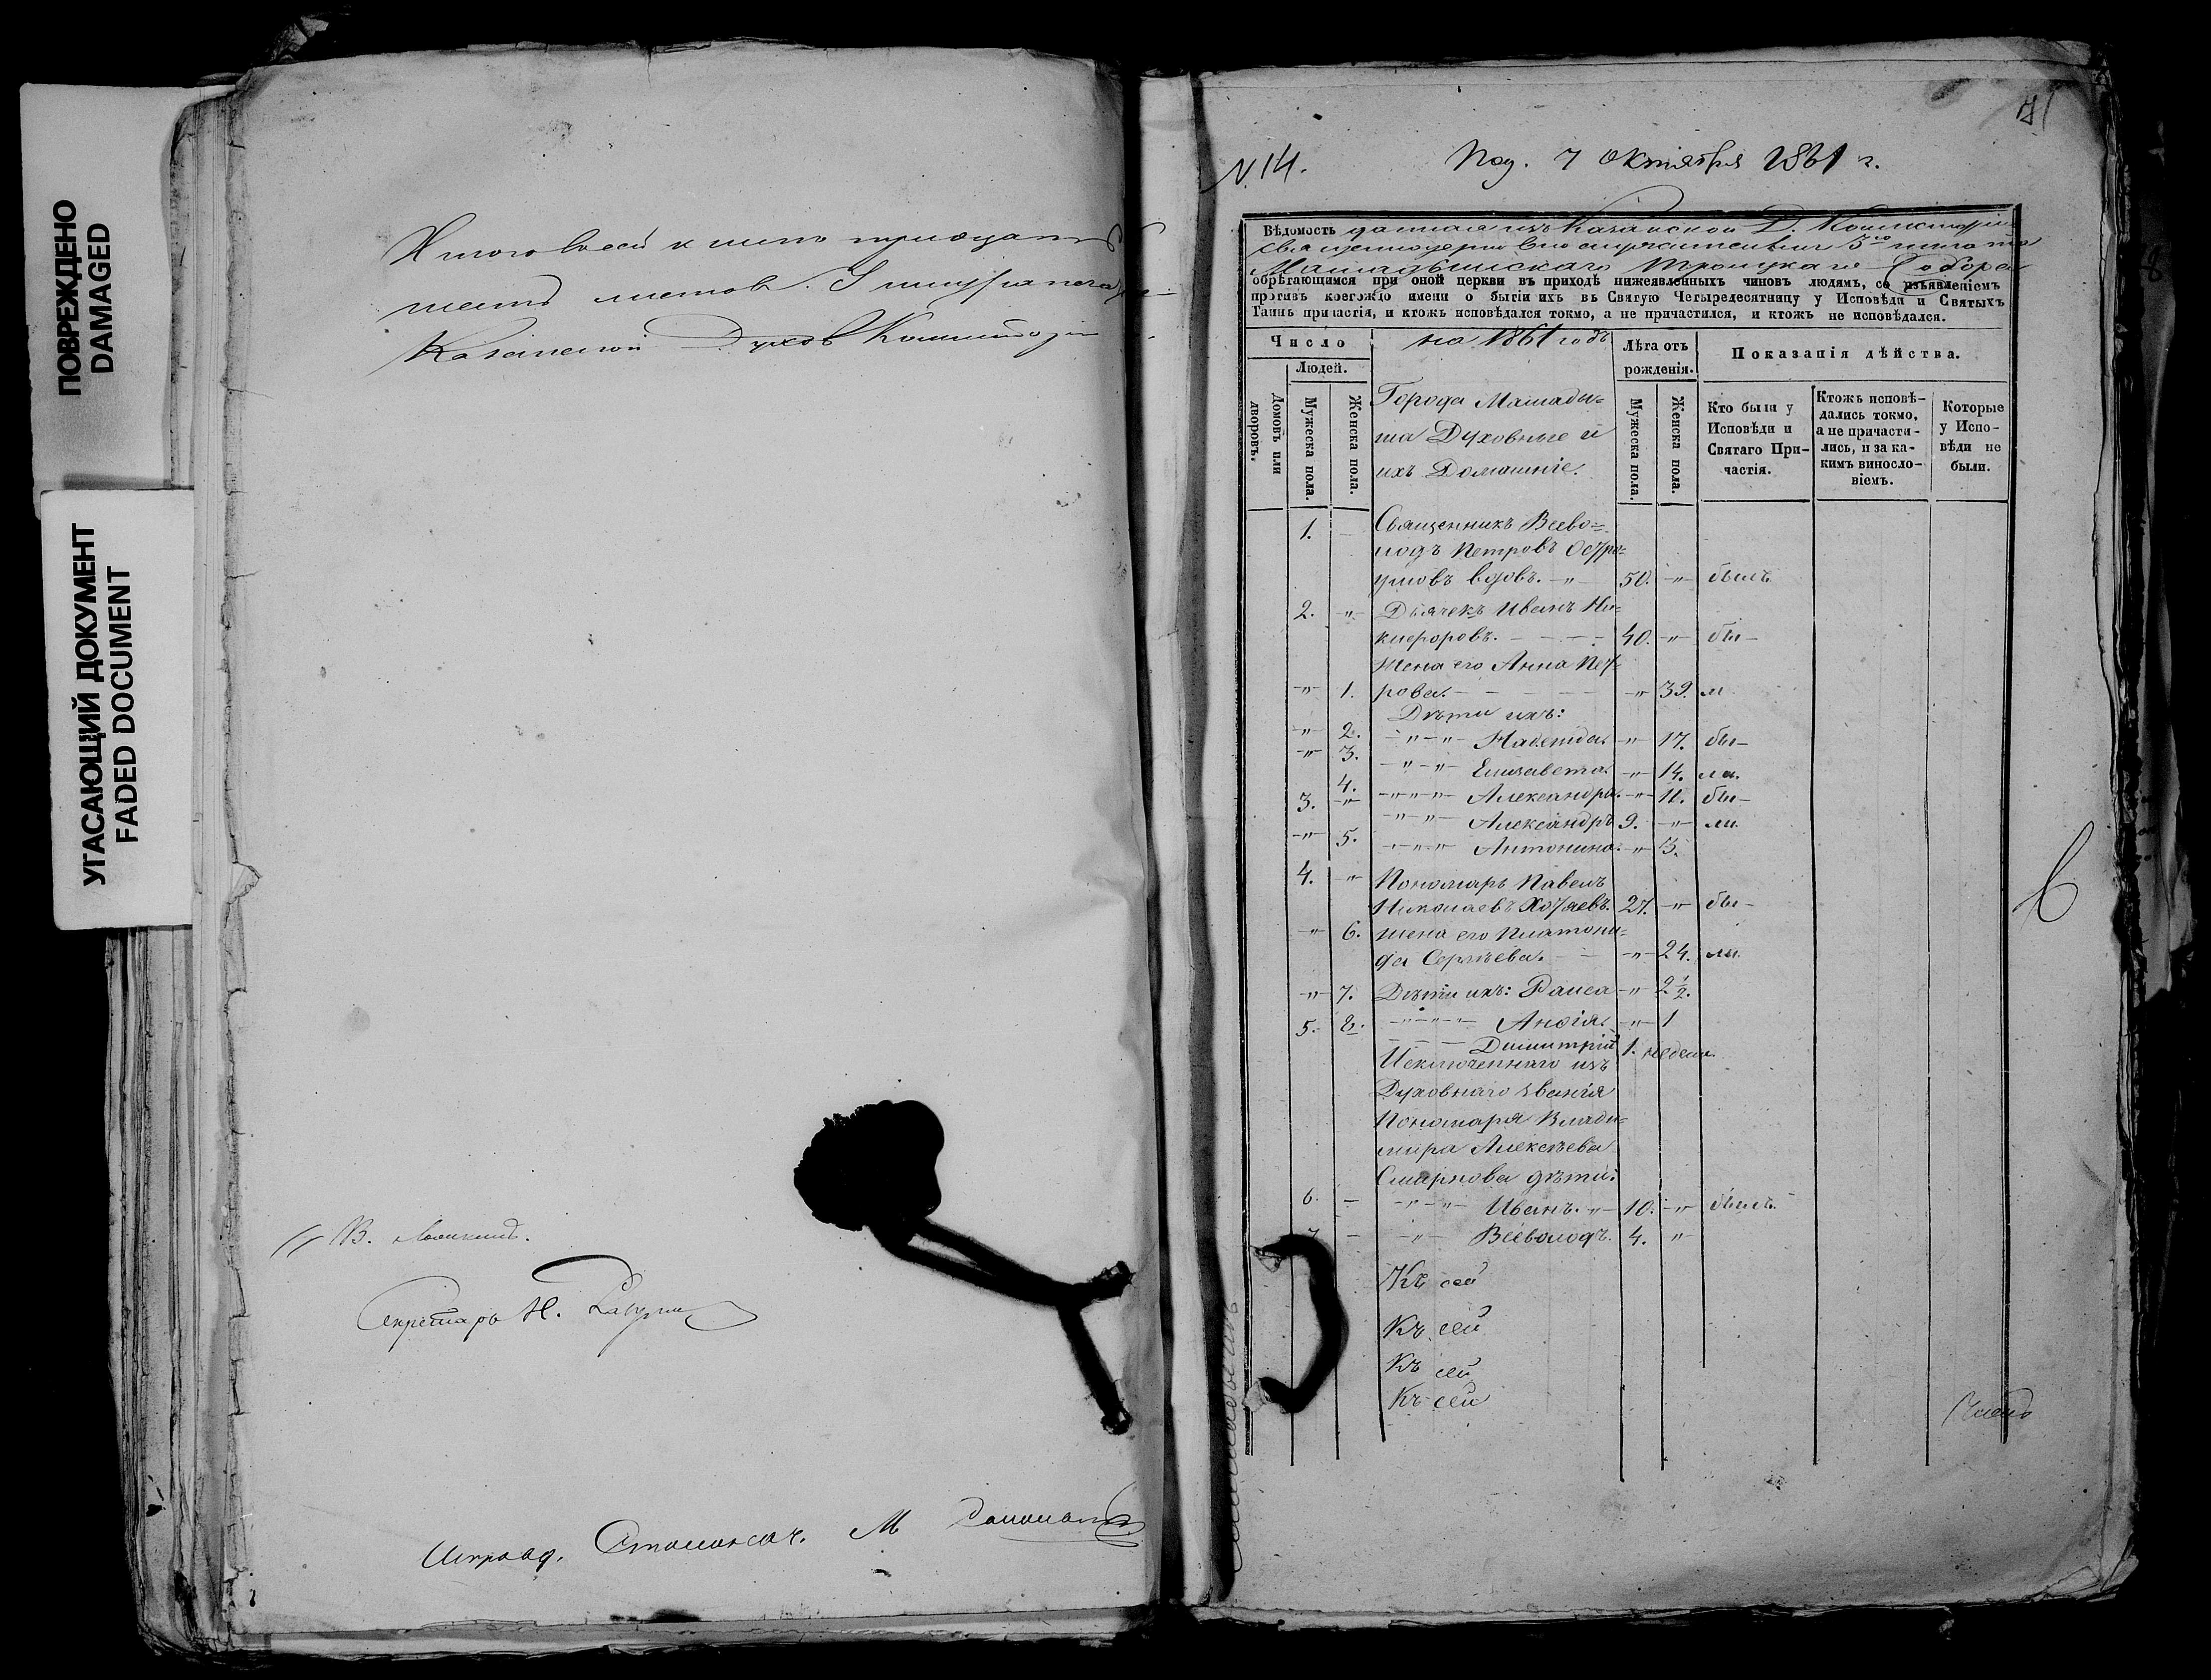 ПОВРЕЖДЕНО
DAMAGED
УГАСАЮЩИЙ ДОКУМЕНТ
FADED DOCUMENT
листов. У шнура печать
Казанской Духов Консистории
Секретарь Н.
Исправ. Столонач. М
71
N. 14. Под. 7 Октября 1861 г.
Вѣдомость данная изъ Казанской Д. Консисторіи
священноцерковнослужителямъ 3го штата
Мамадышскаго Троицкаго Собора
обрѣтающимся при оной церкви въ приходѣ нижеявленныхъ чиновъ людямъ, со изъявленіемъ
противъ коегождо имени о бытіи ихъ въ Святую Четыредесятницу у Исповѣди и Святыхъ
Таинъ причастія, и ктожъ исповѣдался токмо, а не причастился, и ктожъ не исповѣдался.
на 1861 годъ
Число
Людей.
Домовъ или дворовъ.
Мужеска пола.
Женска пола.
Города Мамады-
ша Духовные и
ихъ Домашніе.
Лѣта отъ
рожденія.
Мужеска пола.
Женска пола.
Показанія дѣйства.
Кто были у
Исповѣди и
Святаго При-
частія.
Ктожъ исповѣ-
дались токмо,
а не причасти-
лись, и за ка-
кимъ виносло-
віемъ.
Которые
у Испо-
вѣди не
были.
1. Священникъ Всево-
лодъ Петровъ Остро-
умовъ вдовъ. -"- 50. -"- былъ
2. -"- Дьячекъ Иванъ Ни-
кифоровъ. 40. -"- бы-
Жена его Анна Пет-
-"- 1. рова. -"- 39. ли
Дѣти ихъ:
-"- 2. -"-"- Надежда. -"- 17. бы-
-"- 3. -"-"- Елизавета. -"- 14. ла.
4. -"-"- Александра. -"- 11. бы-
3. -"- -"-"- Александръ 9. -"- ли.
-"- 5. -"-"- Антонина. -"- 3.
4. -"- Пономарь Павелъ
Николаевъ Хотяевъ. 27. -"- бы-
-"- 6. жена его Платони-
да Сергѣева. -"- 24. ли.
-"- 7. Дѣти ихъ: Раиса -"- 2 1/2.
5. 8. -"-"- Анѳія. -"- 1
Димитрій 1. недели.
Исключеннаго изъ
Духовнаго званія
Пономаря Влади-
мира Алексѣева
Смирнова дѣти:
6. - -"-"- Иванъ. -"- 10. -"- былъ.
7. - -"- Всеволодъ. 4. "
Къ сей
Къ сей
Къ сей
Къ сей